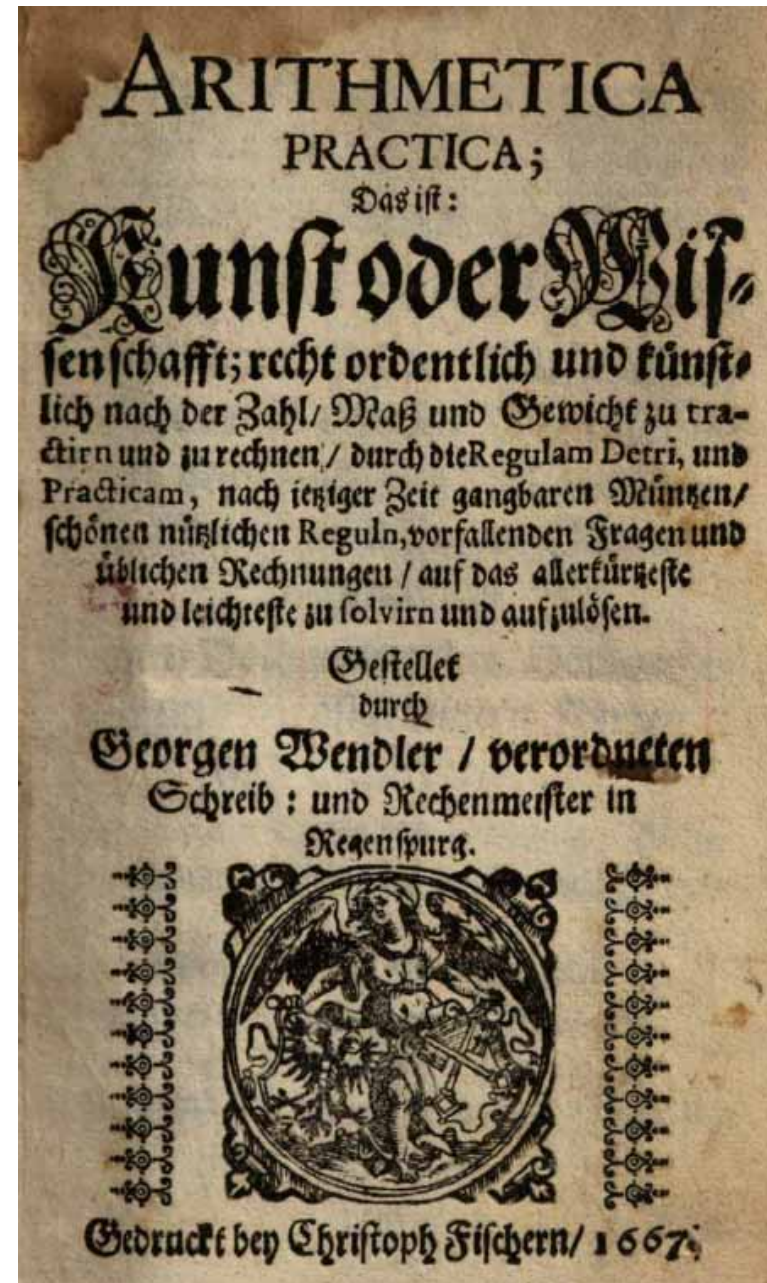 ARITHMETICA
PRACTICA;
Das ist:
Kunst oder Wis-
senschafft; recht ordentlich und künst-
lich nach der Zahl/ Maß und Gewicht zu tra-
ctirn und zu rechnen/ durch die Regulam Detri, und
Practicam, nach ietziger Zeit gangbaren Müntzen/
schönen nützlichen Reguln, vorfallenden Fragen und
üblichen Rechnungen / auf das allerkürtzeste
und leichteste zu solvirn und aufzulösen.
Gestellet
durch
Georgen Wendler / verordneten
Schreib: und Rechenmeister in
Regenspurg.
Gedruckt bey Christoph Fischern/ 1667.